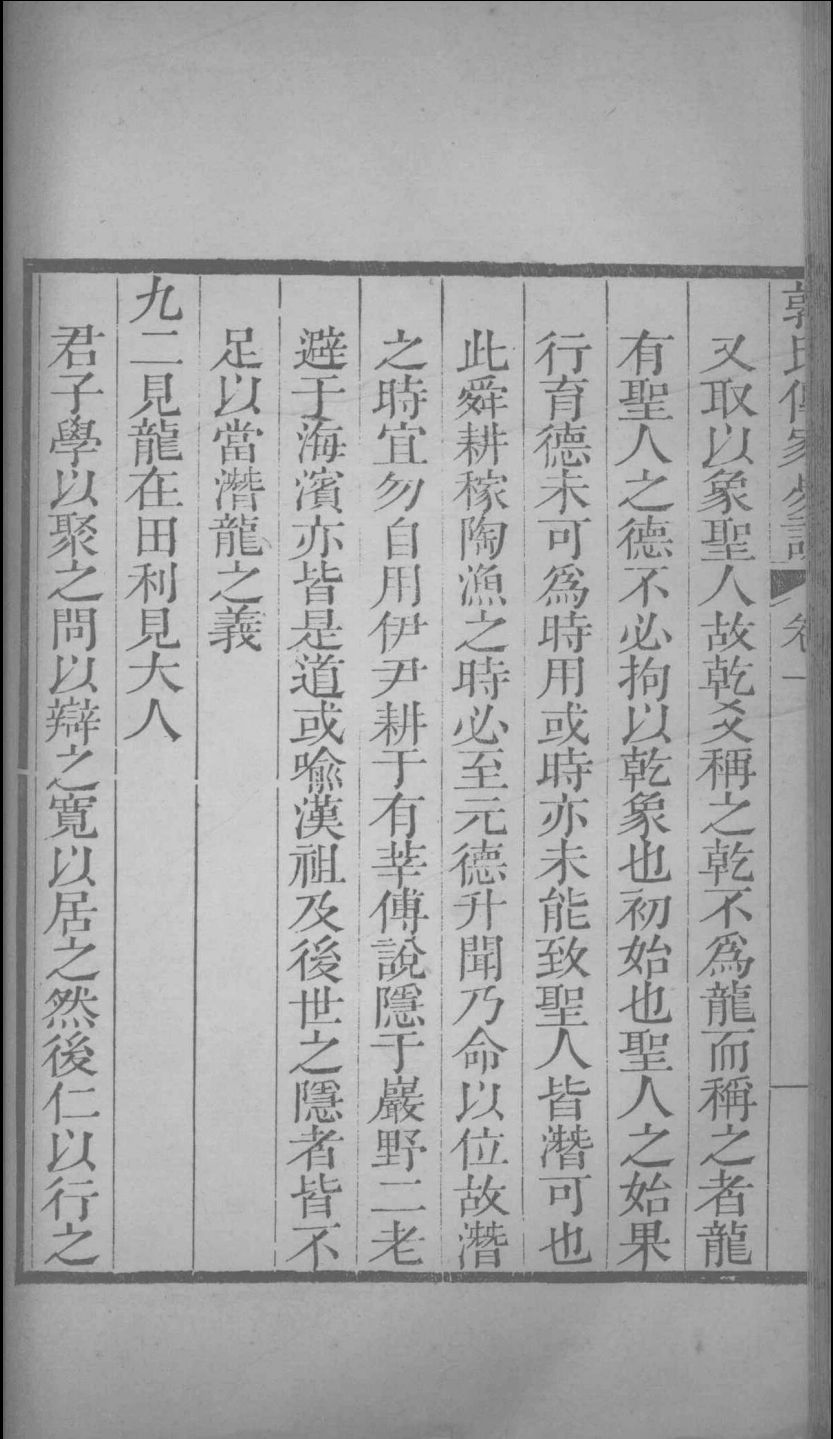 郭氏傳家易說 卷一
又取以象聖人故乾爻稱之乾不爲龍而稱之者龍
有聖人之德不必拘以乾象也初始也聖人之始果
行育德未可爲時用或時亦未能致聖人皆潛可也
此舜耕稼陶漁之時必至元德升聞乃命以位故潛
之時宜勿自用伊尹耕于有莘傅說隱于巖野二老
避于海濱亦皆是道或喩漢祖及後世之隱者皆不
足以當潛龍之義
九二見龍在田利見大人
君子學以聚之問以辯之寬以居之然後仁以行之